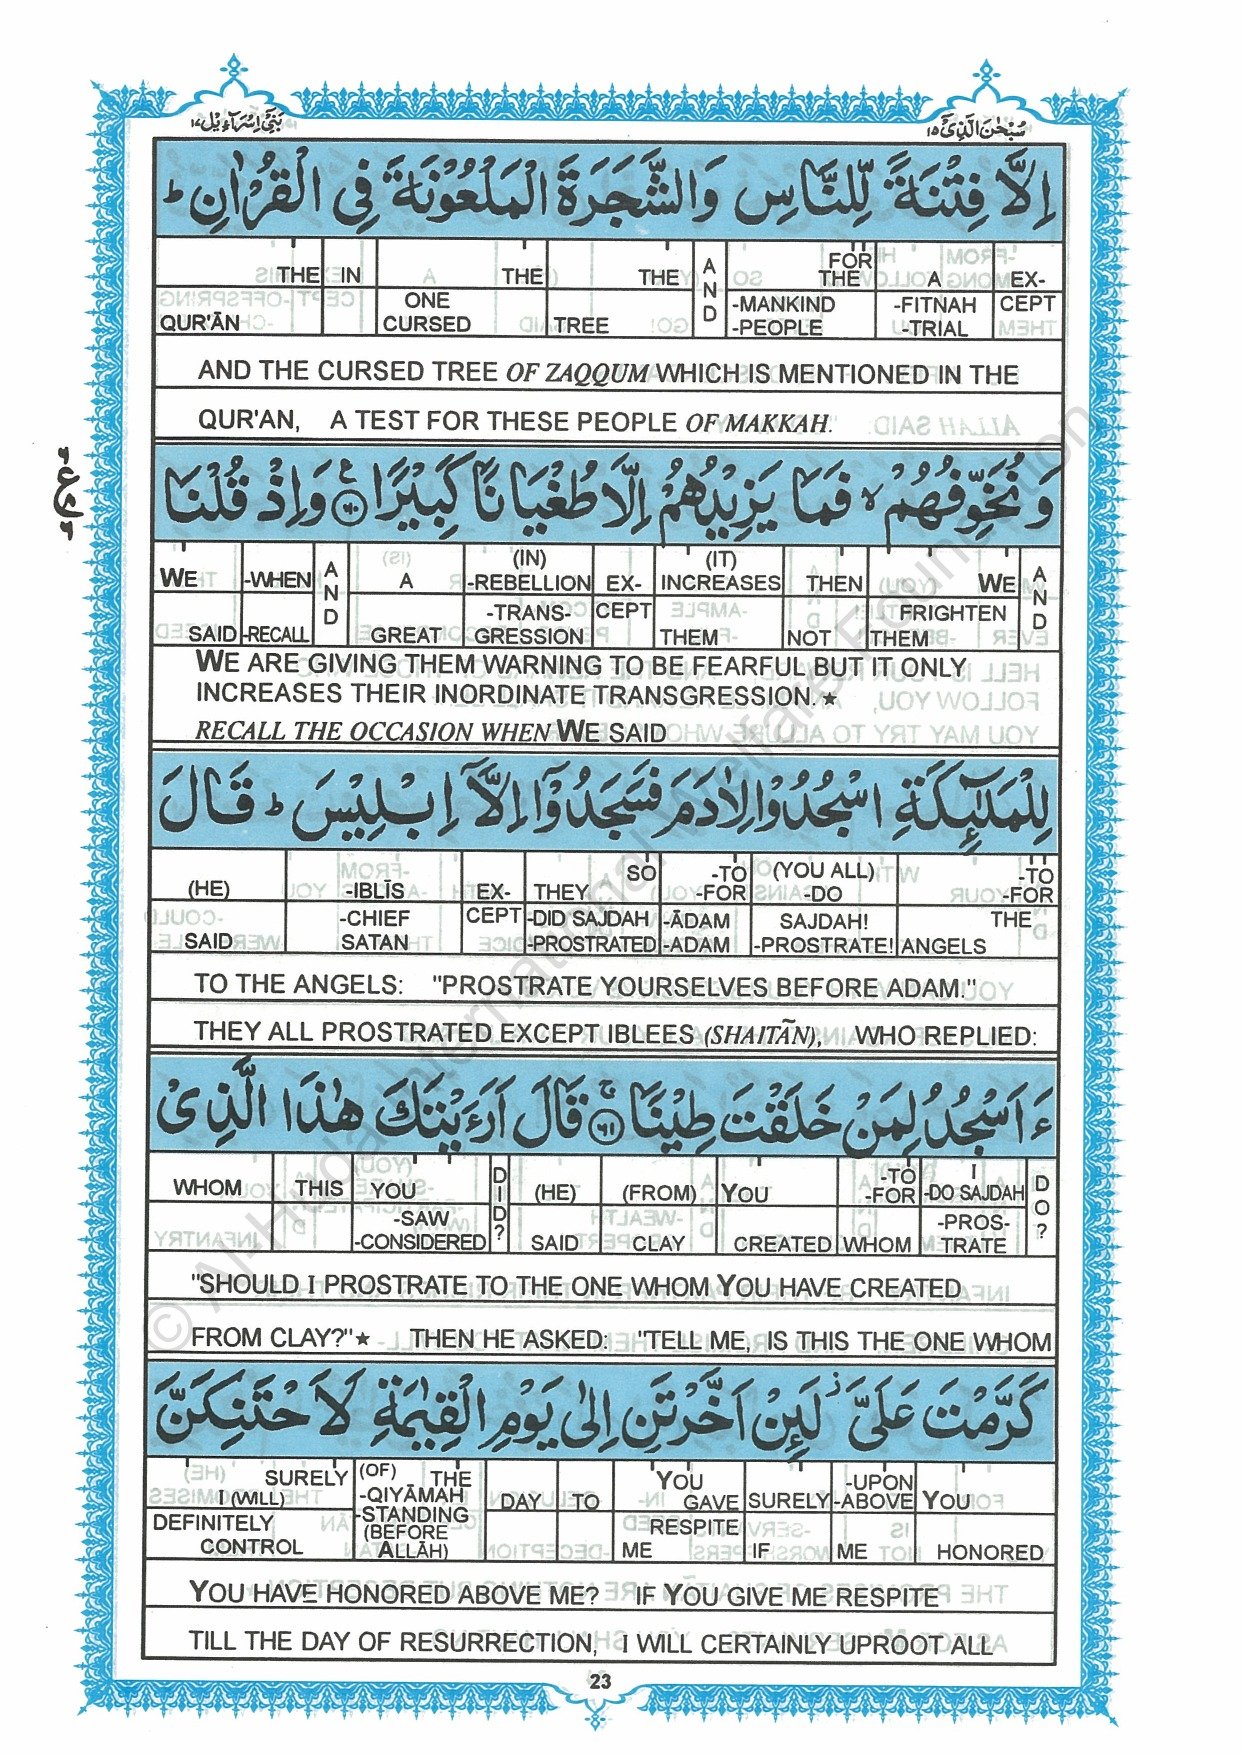 بَنِيٓ اِسْرَآءِيْل١٧
سُبْحٰنَ الَّذِيْٓ١٥
اِلَّا فِتْنَةً لِّلنَّاسِ وَالشَّجَرَةَ الْمَلْعُوْنَةَ فِي الْقُرْاٰنِ ؕ
THE IN THE THE AND FOR THE A EX-
QUR'ĀN ONE CURSED TREE -MANKIND -PEOPLE -FITNAH -TRIAL CEPT
AND THE CURSED TREE OF ZAQQUM WHICH IS MENTIONED IN THE
QUR'AN, A TEST FOR THESE PEOPLE OF MAKKAH.
وَنُخَوِّفُهُمْ ۙ فَمَا يَزِيْدُهُمْ اِلَّا طُغْيَانًا كَبِيْرًا ﴿٦٠﴾ وَاِذْ قُلْنَا
WE -WHEN AND A (IN) -REBELLION EX- (IT) INCREASES THEN WE AND
SAID -RECALL GREAT -TRANS- GRESSION CEPT THEM NOT FRIGHTEN THEM
WE ARE GIVING THEM WARNING TO BE FEARFUL BUT IT ONLY
INCREASES THEIR INORDINATE TRANSGRESSION.★
RECALL THE OCCASION WHEN WE SAID
لِلْمَلٰٓئِكَةِ اسْجُدُوْا لِاٰدَمَ فَسَجَدُوْٓا اِلَّآ اِبْلِيْسَ ؕ قَالَ
(HE) -IBLĪS EX- THEY SO -TO -FOR (YOU ALL) -DO -TO -FOR
SAID -CHIEF SATAN CEPT -DID SAJDAH -PROSTRATED -ĀDAM -ADAM SAJDAH! -PROSTRATE! THE ANGELS
TO THE ANGELS: "PROSTRATE YOURSELVES BEFORE ADAM."
THEY ALL PROSTRATED EXCEPT IBLEES (SHAITĀN), WHO REPLIED:
ءَاَسْجُدُ لِمَنْ خَلَقْتَ طِيْنًا ۚ ﴿٦١﴾ قَالَ اَرَءَيْتَكَ هٰذَا الَّذِيْ
WHOM THIS YOU DID? (HE) (FROM) YOU -TO -FOR I -DO SAJDAH DO?
-SAW -CONSIDERED SAID CLAY CREATED WHOM -PROS- TRATE
"SHOULD I PROSTRATE TO THE ONE WHOM YOU HAVE CREATED
FROM CLAY?"★ THEN HE ASKED: "TELL ME, IS THIS THE ONE WHOM
كَرَّمْتَ عَلَيَّ ؗ لَئِنْ اَخَّرْتَنِ اِلٰى يَوْمِ الْقِيٰمَةِ لَاَحْتَنِكَنَّ
SURELY I (WILL) (OF) THE -QIYĀMAH DAY TO YOU GAVE SURELY -UPON -ABOVE YOU
DEFINITELY CONTROL -STANDING (BEFORE ALLĀH) RESPITE ME IF ME HONORED
YOU HAVE HONORED ABOVE ME? IF YOU GIVE ME RESPITE
TILL THE DAY OF RESURRECTION, I WILL CERTAINLY UPROOT ALL
23
© Al-Huda International Welfare Foundation